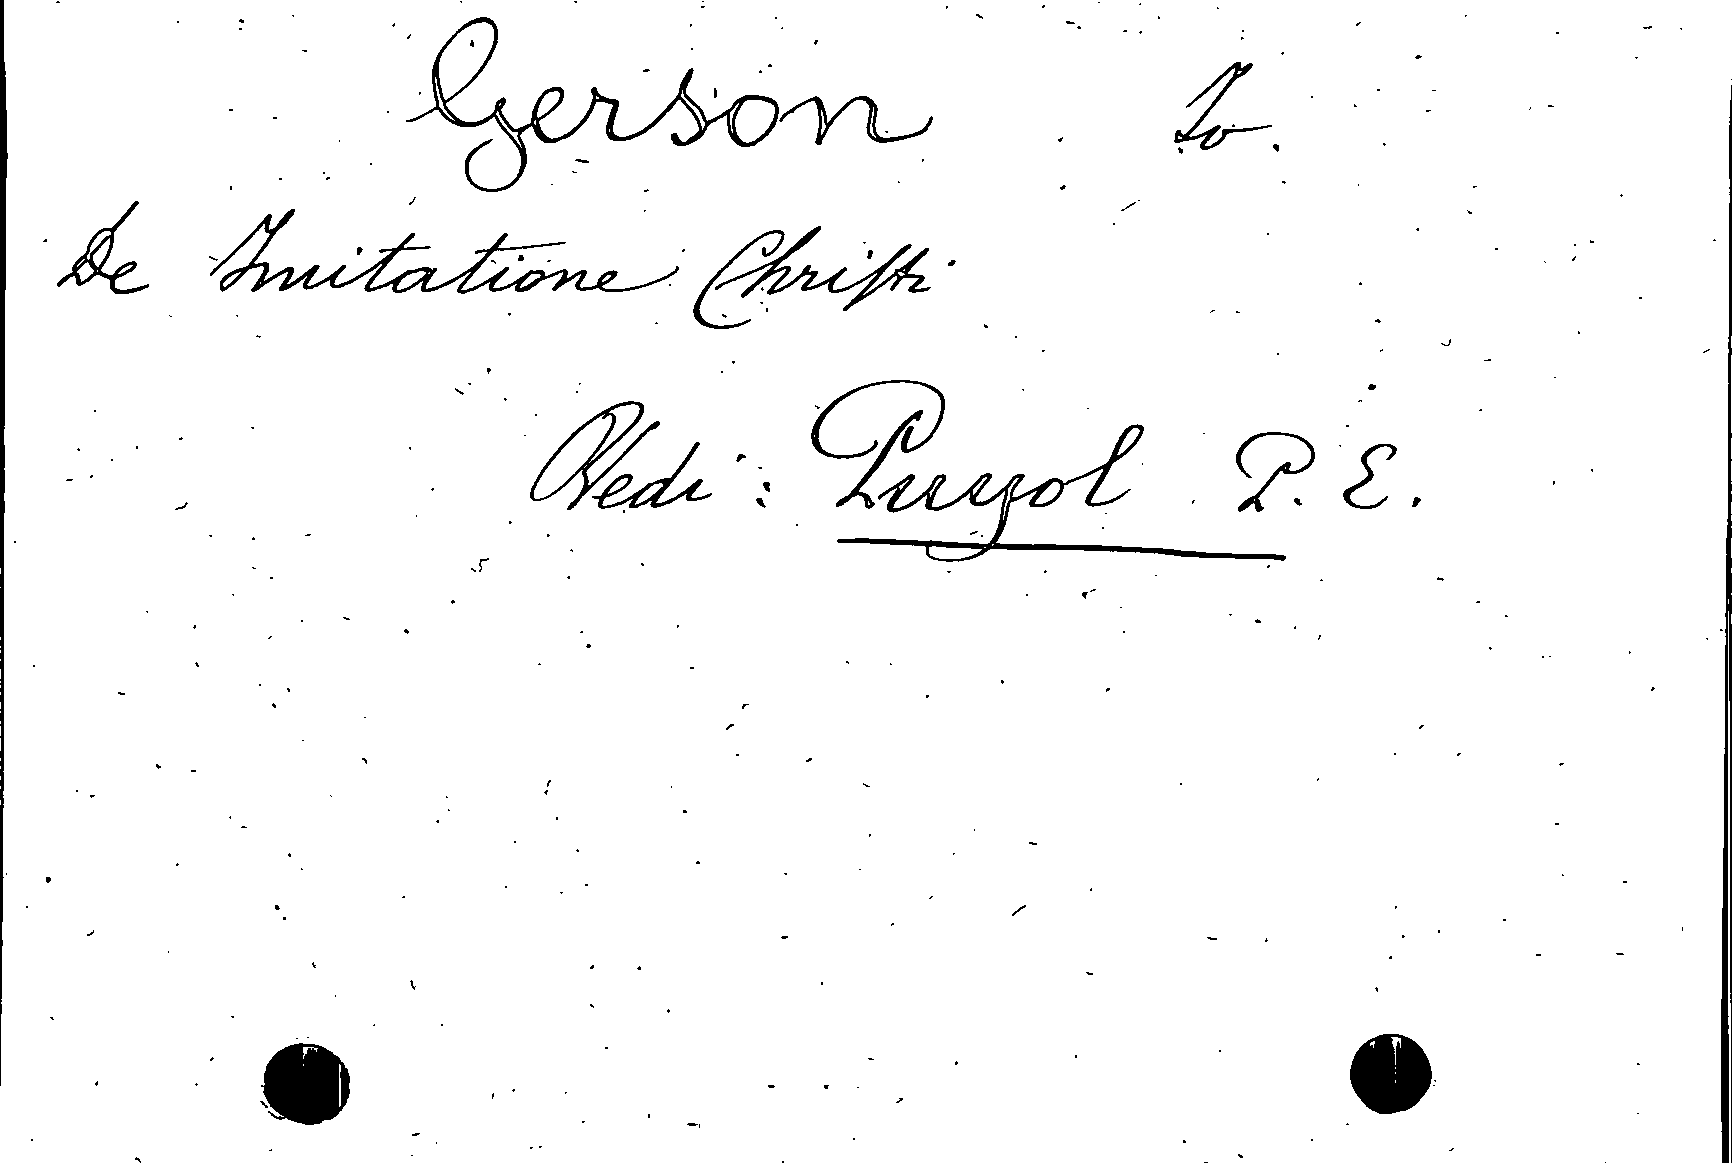 Gerson Io.
De Imitatione Christi
Vedi: Puyol P. E.